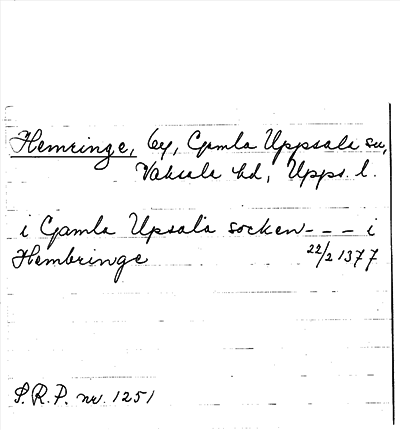 Hemringe, by, Gamla Uppsala sn,
Vaksala hd, Upps. l.
i Gamla Upsala socken - - - i
Hembringe 22/2 1377
S.R.P. nr. 1251